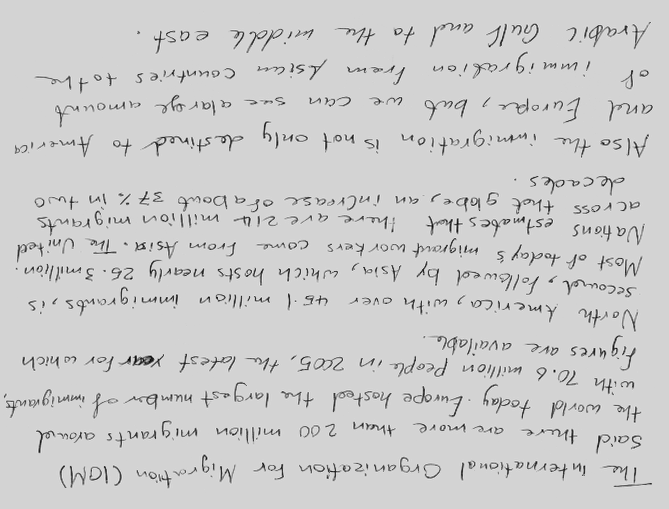 The International Organization for Migration (IOM)
said there are more than 200 million migrants around
the world today. Europe hosted the largest number of immigrants,
with 70.6 million people in 2005, the latest year for which
figures are available.
North America, with over 45.1 million immigrants, is
second, followed by Asia, which hosts nearly 25.3 million.
Most of today's migrant workers come from Asia. The United
Nations estimates that there are 214 million migrants
across that globe, an increase of about 37% in two
decades.
Also the immigration is not only destined to America
and Europe, but we can see a large amount
of immigration from Asian countries to the
Arabic Gulf and to the middle east.